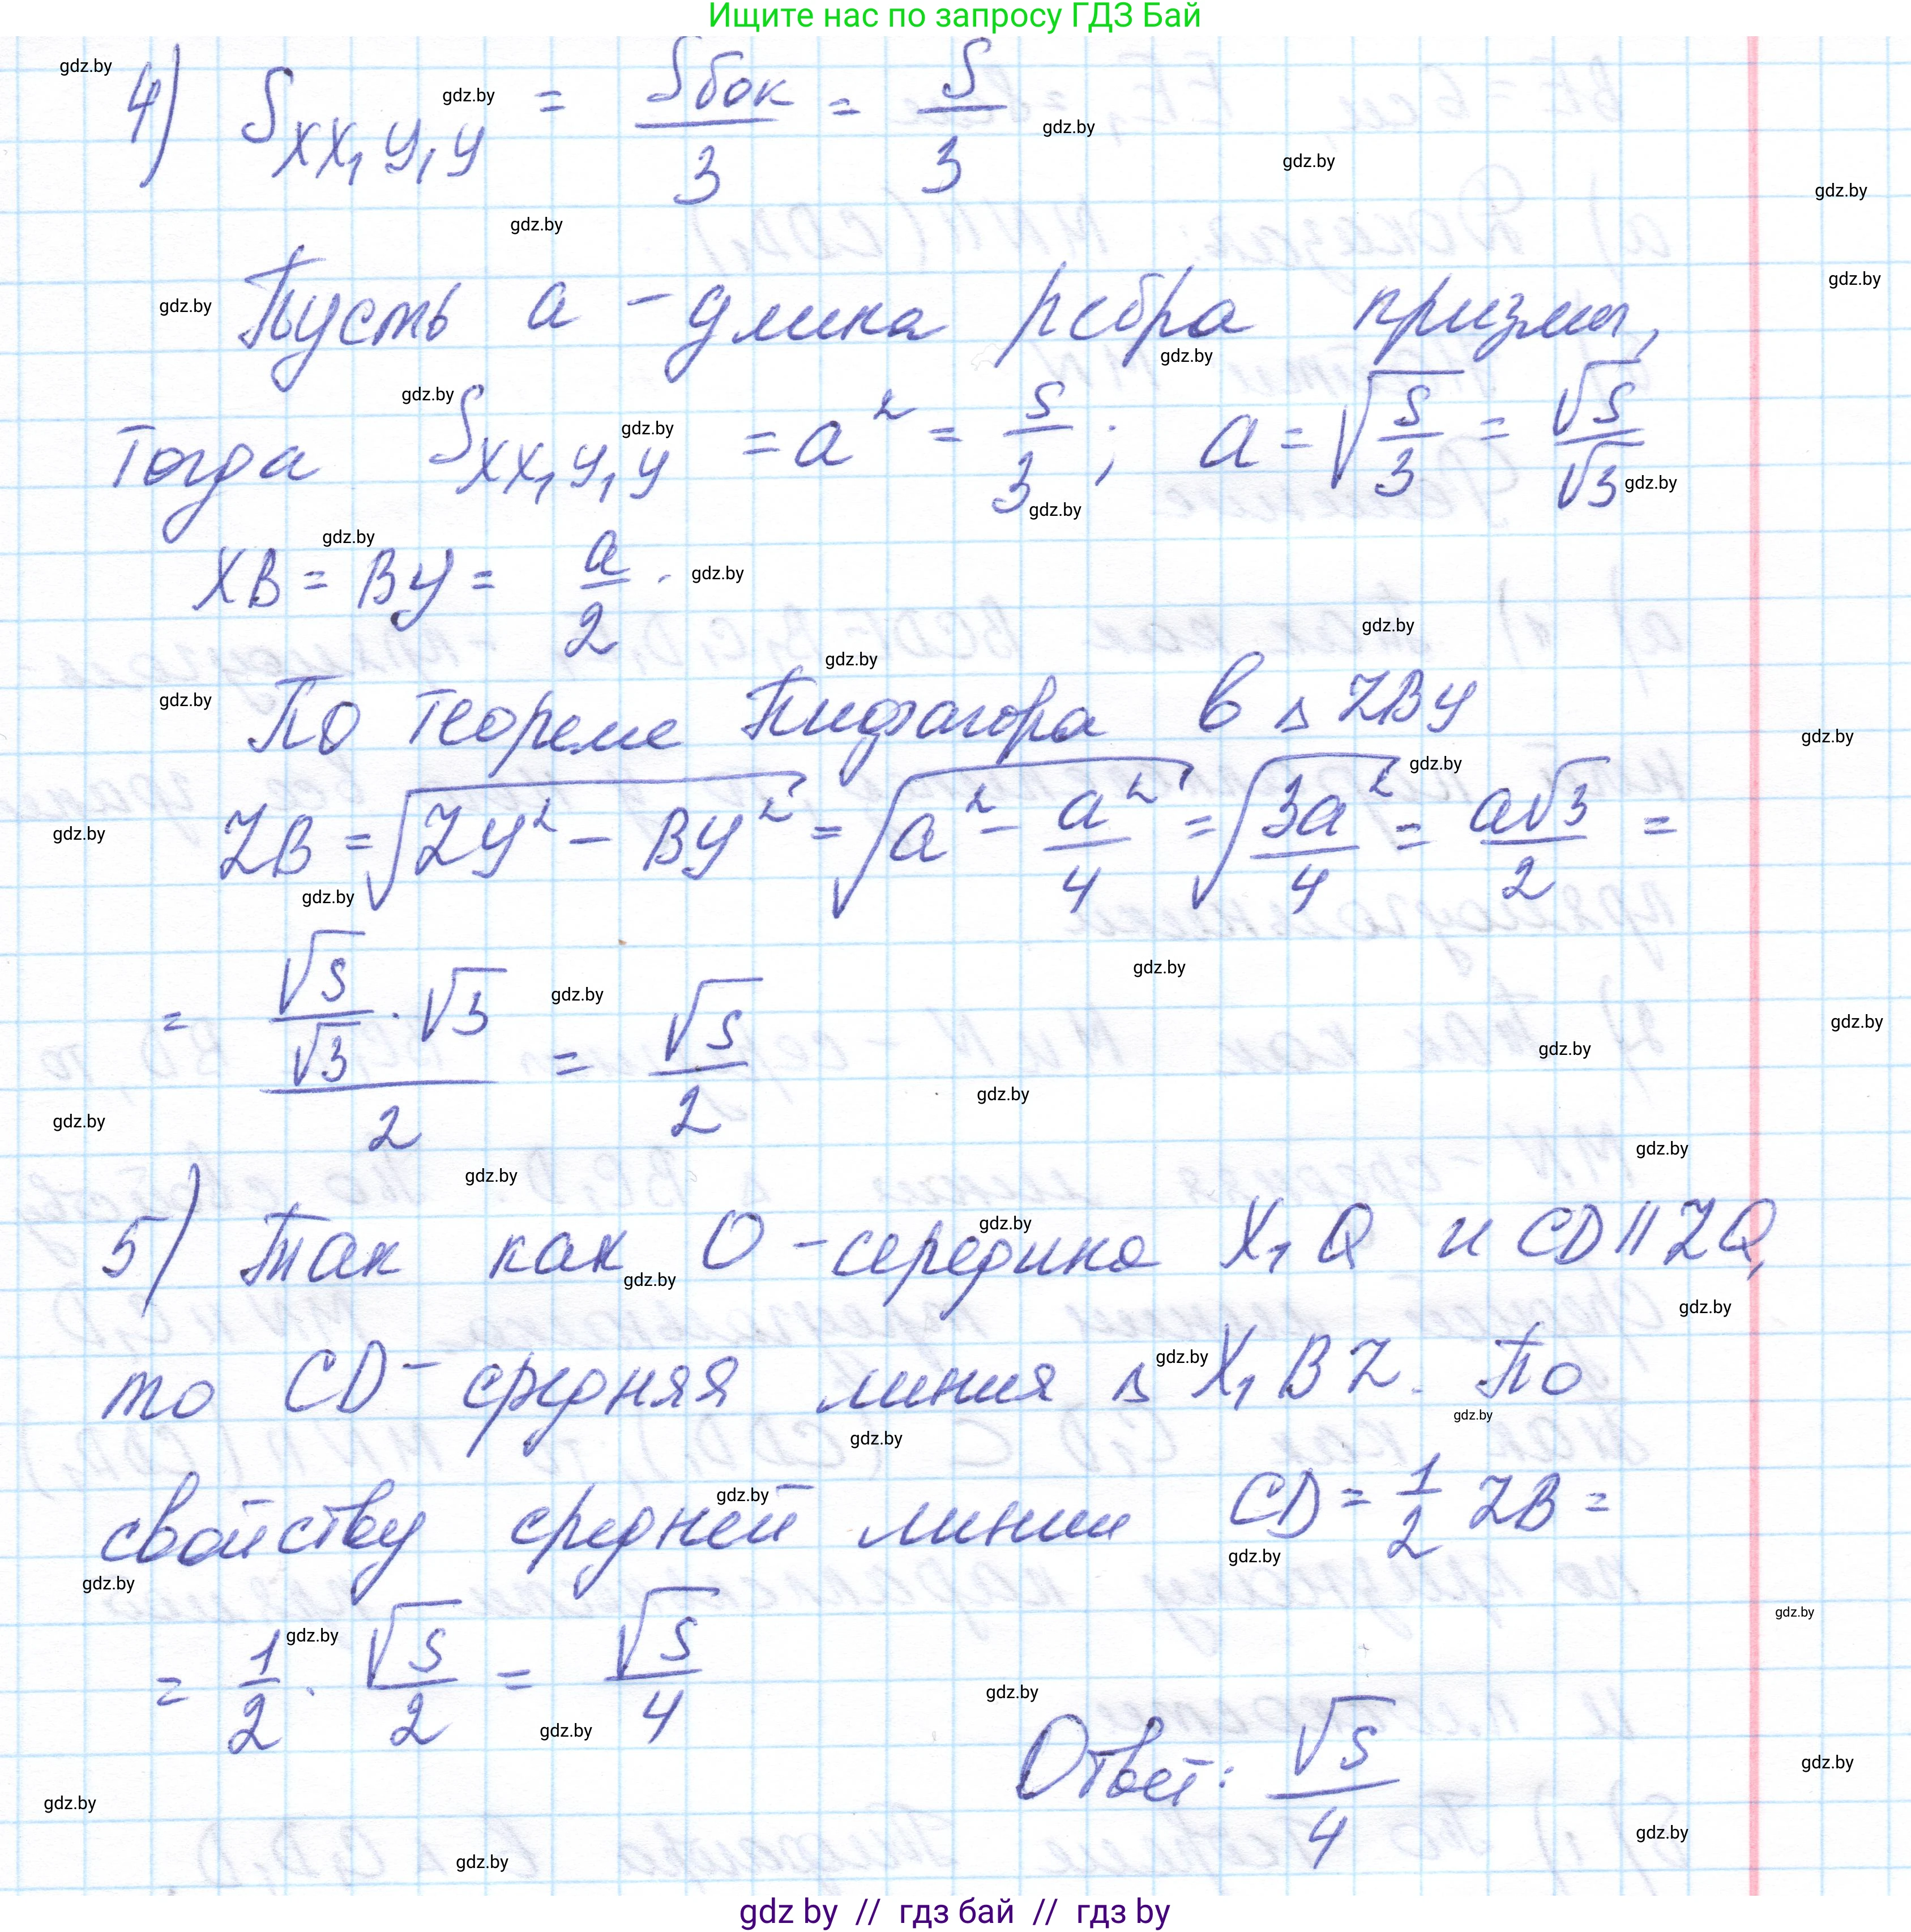 Ищите нас по запросу ГДЗ Бай
4) S_{XX₁Y₁Y} = Sбок/3 = S/3
Пусть a - длина ребра призмы,
тогда S_{XX₁Y₁Y} = a² = S/3; a = √(S/3) = √S/√3
XB = BY = a/2.
По теореме Пифагора в △ ZBY
ZB = √(ZY² - BY²) = √(a² - a²/4) = √(3a²/4) = a√3/2 =
= (√S/√3 · √3)/2 = √S/2
5) Так как O - середина X₁Q и CD || ZQ,
то CD - средняя линия △ X₁BZ. По
свойству средней линии CD = 1/2 ZB =
= 1/2 · √S/2 = √S/4
Ответ: √S/4
gdz by // гдз бай // гдз by